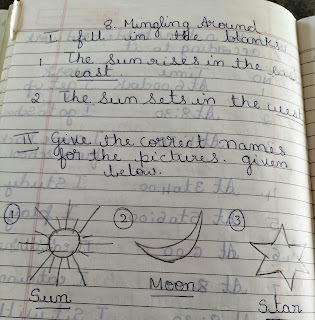 8. Mingling Around
I fill in the blanks
1 The sun rises in the east
east.
2 The Sun sets in the west
IV Give the correct names
for the pictures. given
below.
1 2 3
Sun Moon Star